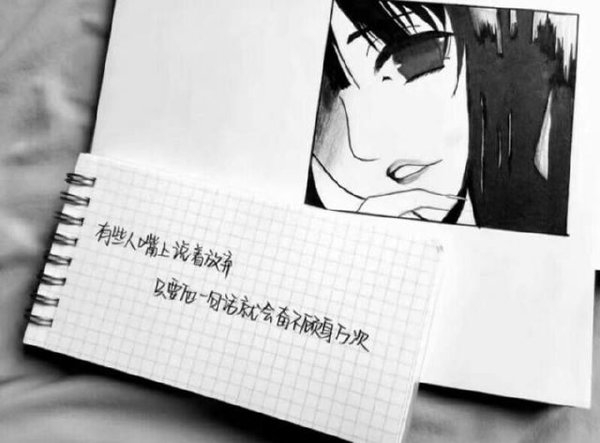 有些人嘴上说着放弃
只要一句话就会奋不顾身次